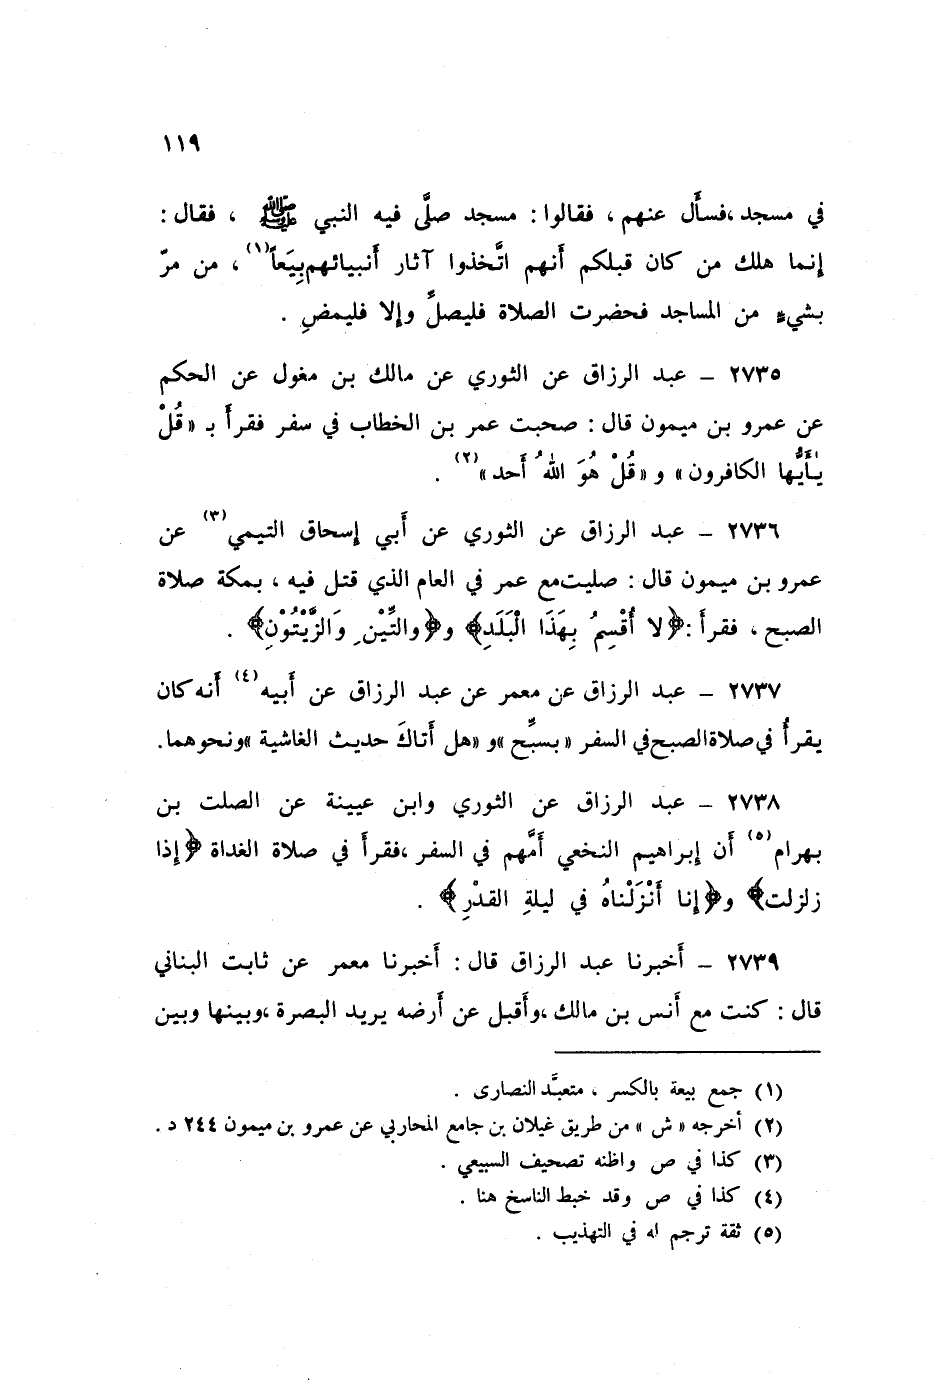 ١١٩
في مسجد ،فسأَل عنهم ، فقالوا : مسجد صلَّى فيه النبي ﷺ ، فقال :
إنما هلك من كان قبلكم أَنهم اتَّخذوا آثار أَنبيائهم بِيَعاً(١) ، من مرّ
بشيءٍ من المساجد فحضرت الصلاة فليصلِّ وإلا فليمضِ .
٢٧٣٥ – عبد الرزاق عن الثوري عن مالك بن مغول عن الحكم
عن عمرو بن ميمون قال : صحبت عمر بن الخطاب في سفر فقرأَ بـ «قُلْ
يٰأَيُّها الكافرون» و «قُلْ هُوَ اللهُ أَحد»(٢) .
٢٧٣٦ – عبد الرزاق عن الثوري عن أَبي إسحاق التيمي(٣) عن
عمرو بن ميمون قال : صليت مع عمر في العام الذي قتل فيه ، بمكة صلاة
الصبح ، فقرأَ : ﴿لا أُقْسِمُ بِهَذَا الْبَلَدِ﴾ و﴿والتِّيْنِ وَالزَّيْتُوْنِ﴾ .
٢٧٣٧ – عبد الرزاق عن معمر عن عبد الرزاق عن أَبيه(٤) أَنه كان
يقرأُ في صلاة الصبح في السفر «بسبِّح» و «هل أَتاكَ حديث الغاشية» ونحوهما.
٢٧٣٨ – عبد الرزاق عن الثوري وابن عيينة عن الصلت بن
بهرام(٥) أَن إبراهيم النخعي أَمَّهم في السفر ،فقرأَ في صلاة الغداة ﴿إذا
زلزلت﴾ و﴿إنا أَنْزَلْناهُ في ليلةِ القدْرِ﴾ .
٢٧٣٩ – أَخبرنا عبد الرزاق قال : أَخبرنا معمر عن ثابت البناني
قال : كنت مع أَنس بن مالك ،وأَقبل عن أَرضه يريد البصرة ،وبينها وبين
(١) جمع بيعة بالكسر ، متعبَّد النصارى .
(٢) أخرجه «ش» من طريق غيلان بن جامع المحاربي عن عمرو بن ميمون ٢٤٤ د .
(٣) كذا في ص واظنه تصحيف السبيعي .
(٤) كذا في ص وقد خبط الناسخ هنا .
(٥) ثقة ترجم له في التهذيب .